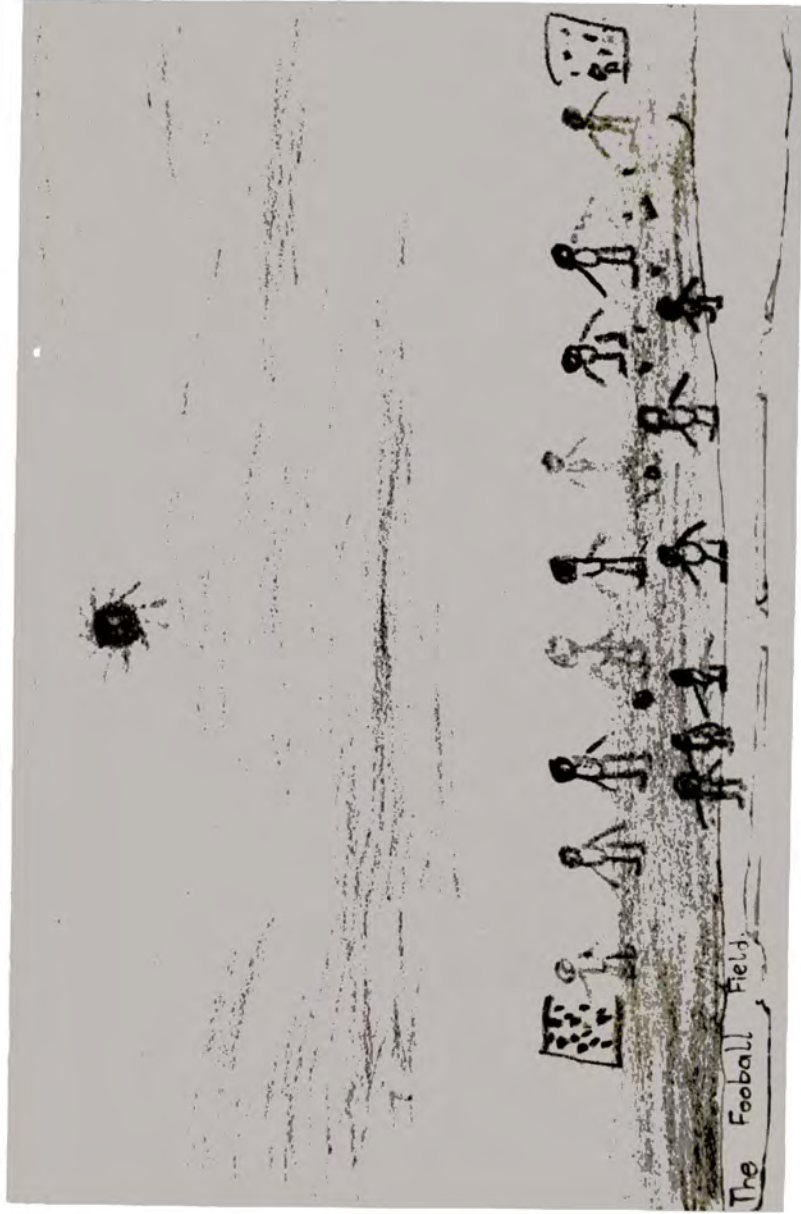 The Fooball Field.